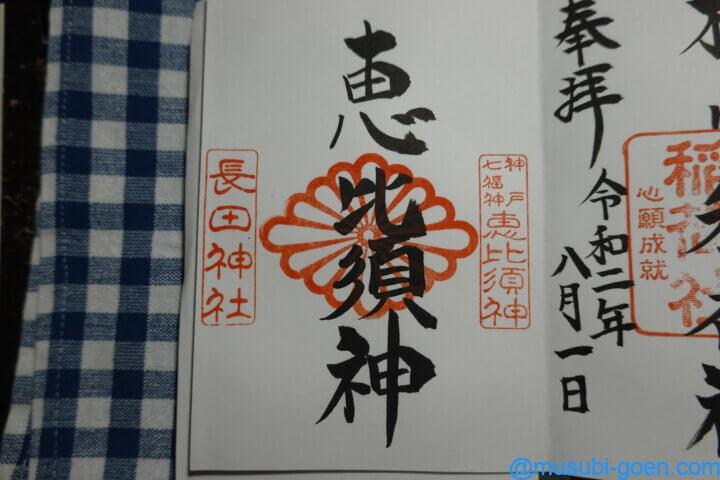 稲荷社
心願成就
奉拝
令和二年
八月一日
神戸
七福神
恵比須神
恵比須神
長田神社
@musubi-goen.com